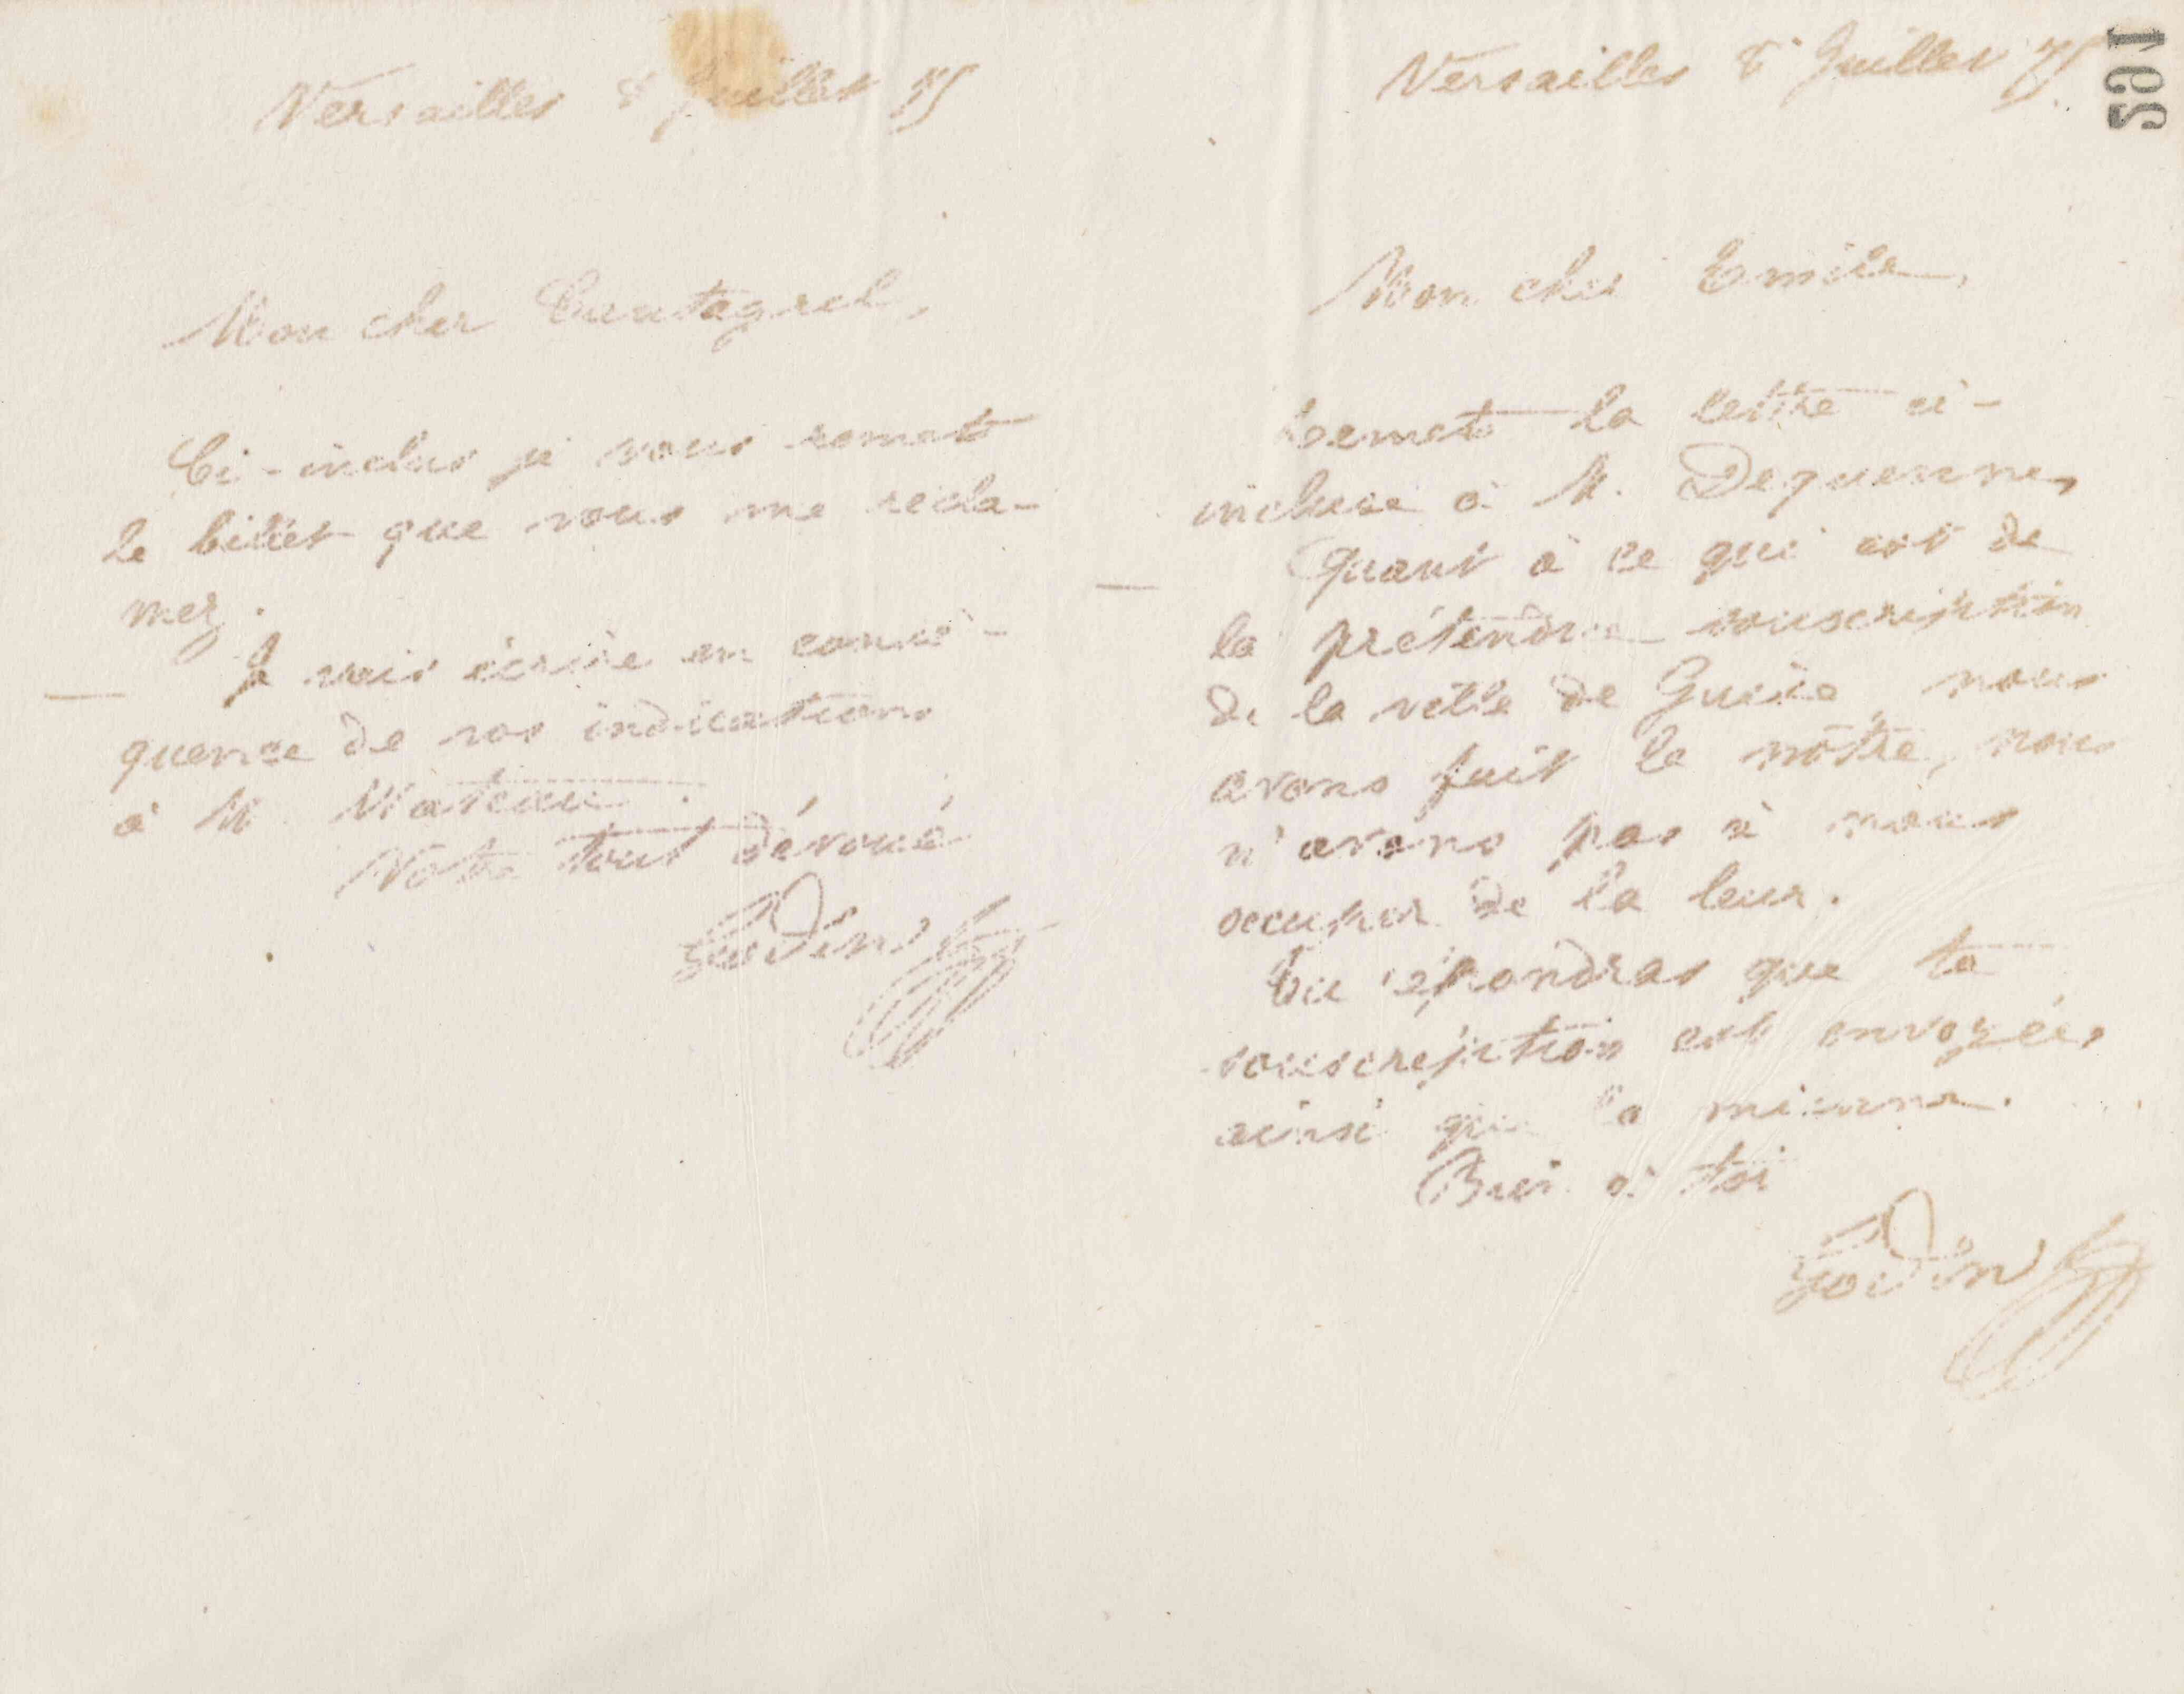 Versailles 8 Juillet 75
Mon cher Cantagrel,
Ci-inclus je vous remets
le billet que vous me récla-
mez.
Je vais écrire en consé-
quence de vos indications
à M.
Votre tout dévoué
Godin
Versailles 8 Juillet 75
Mon cher Emile,
Remets la lettre ci-
incluse à M. Dequenne,
Quant à ce qui est de
la prétendue souscription
de la ville de Guise nous
avons fait la nôtre, nous
n'avons pas à nous
occuper de la leur.
Tu répondras que ta
souscription est envoyée,
ainsi que la mienne.
Bien à toi
Godin